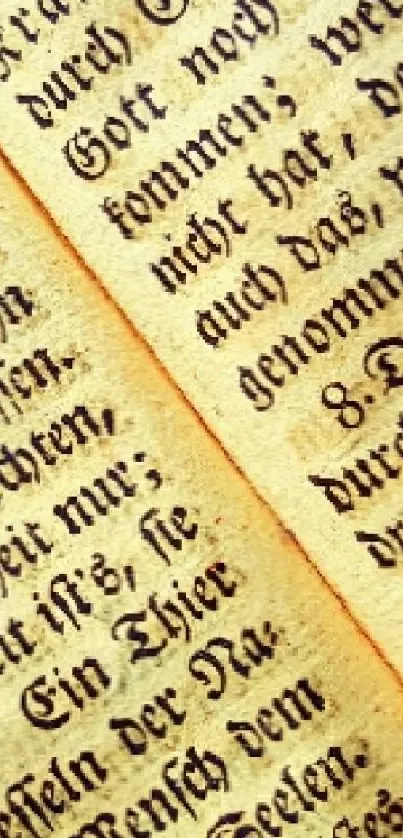 durch
Gott noch
kommen;
nicht hat,
auch das,
genomm
8.
durch
ssen.
chten,
eit nur;
ist's, sie
Ein Thier
esseln der Na-
Mensch dem
Seelen.